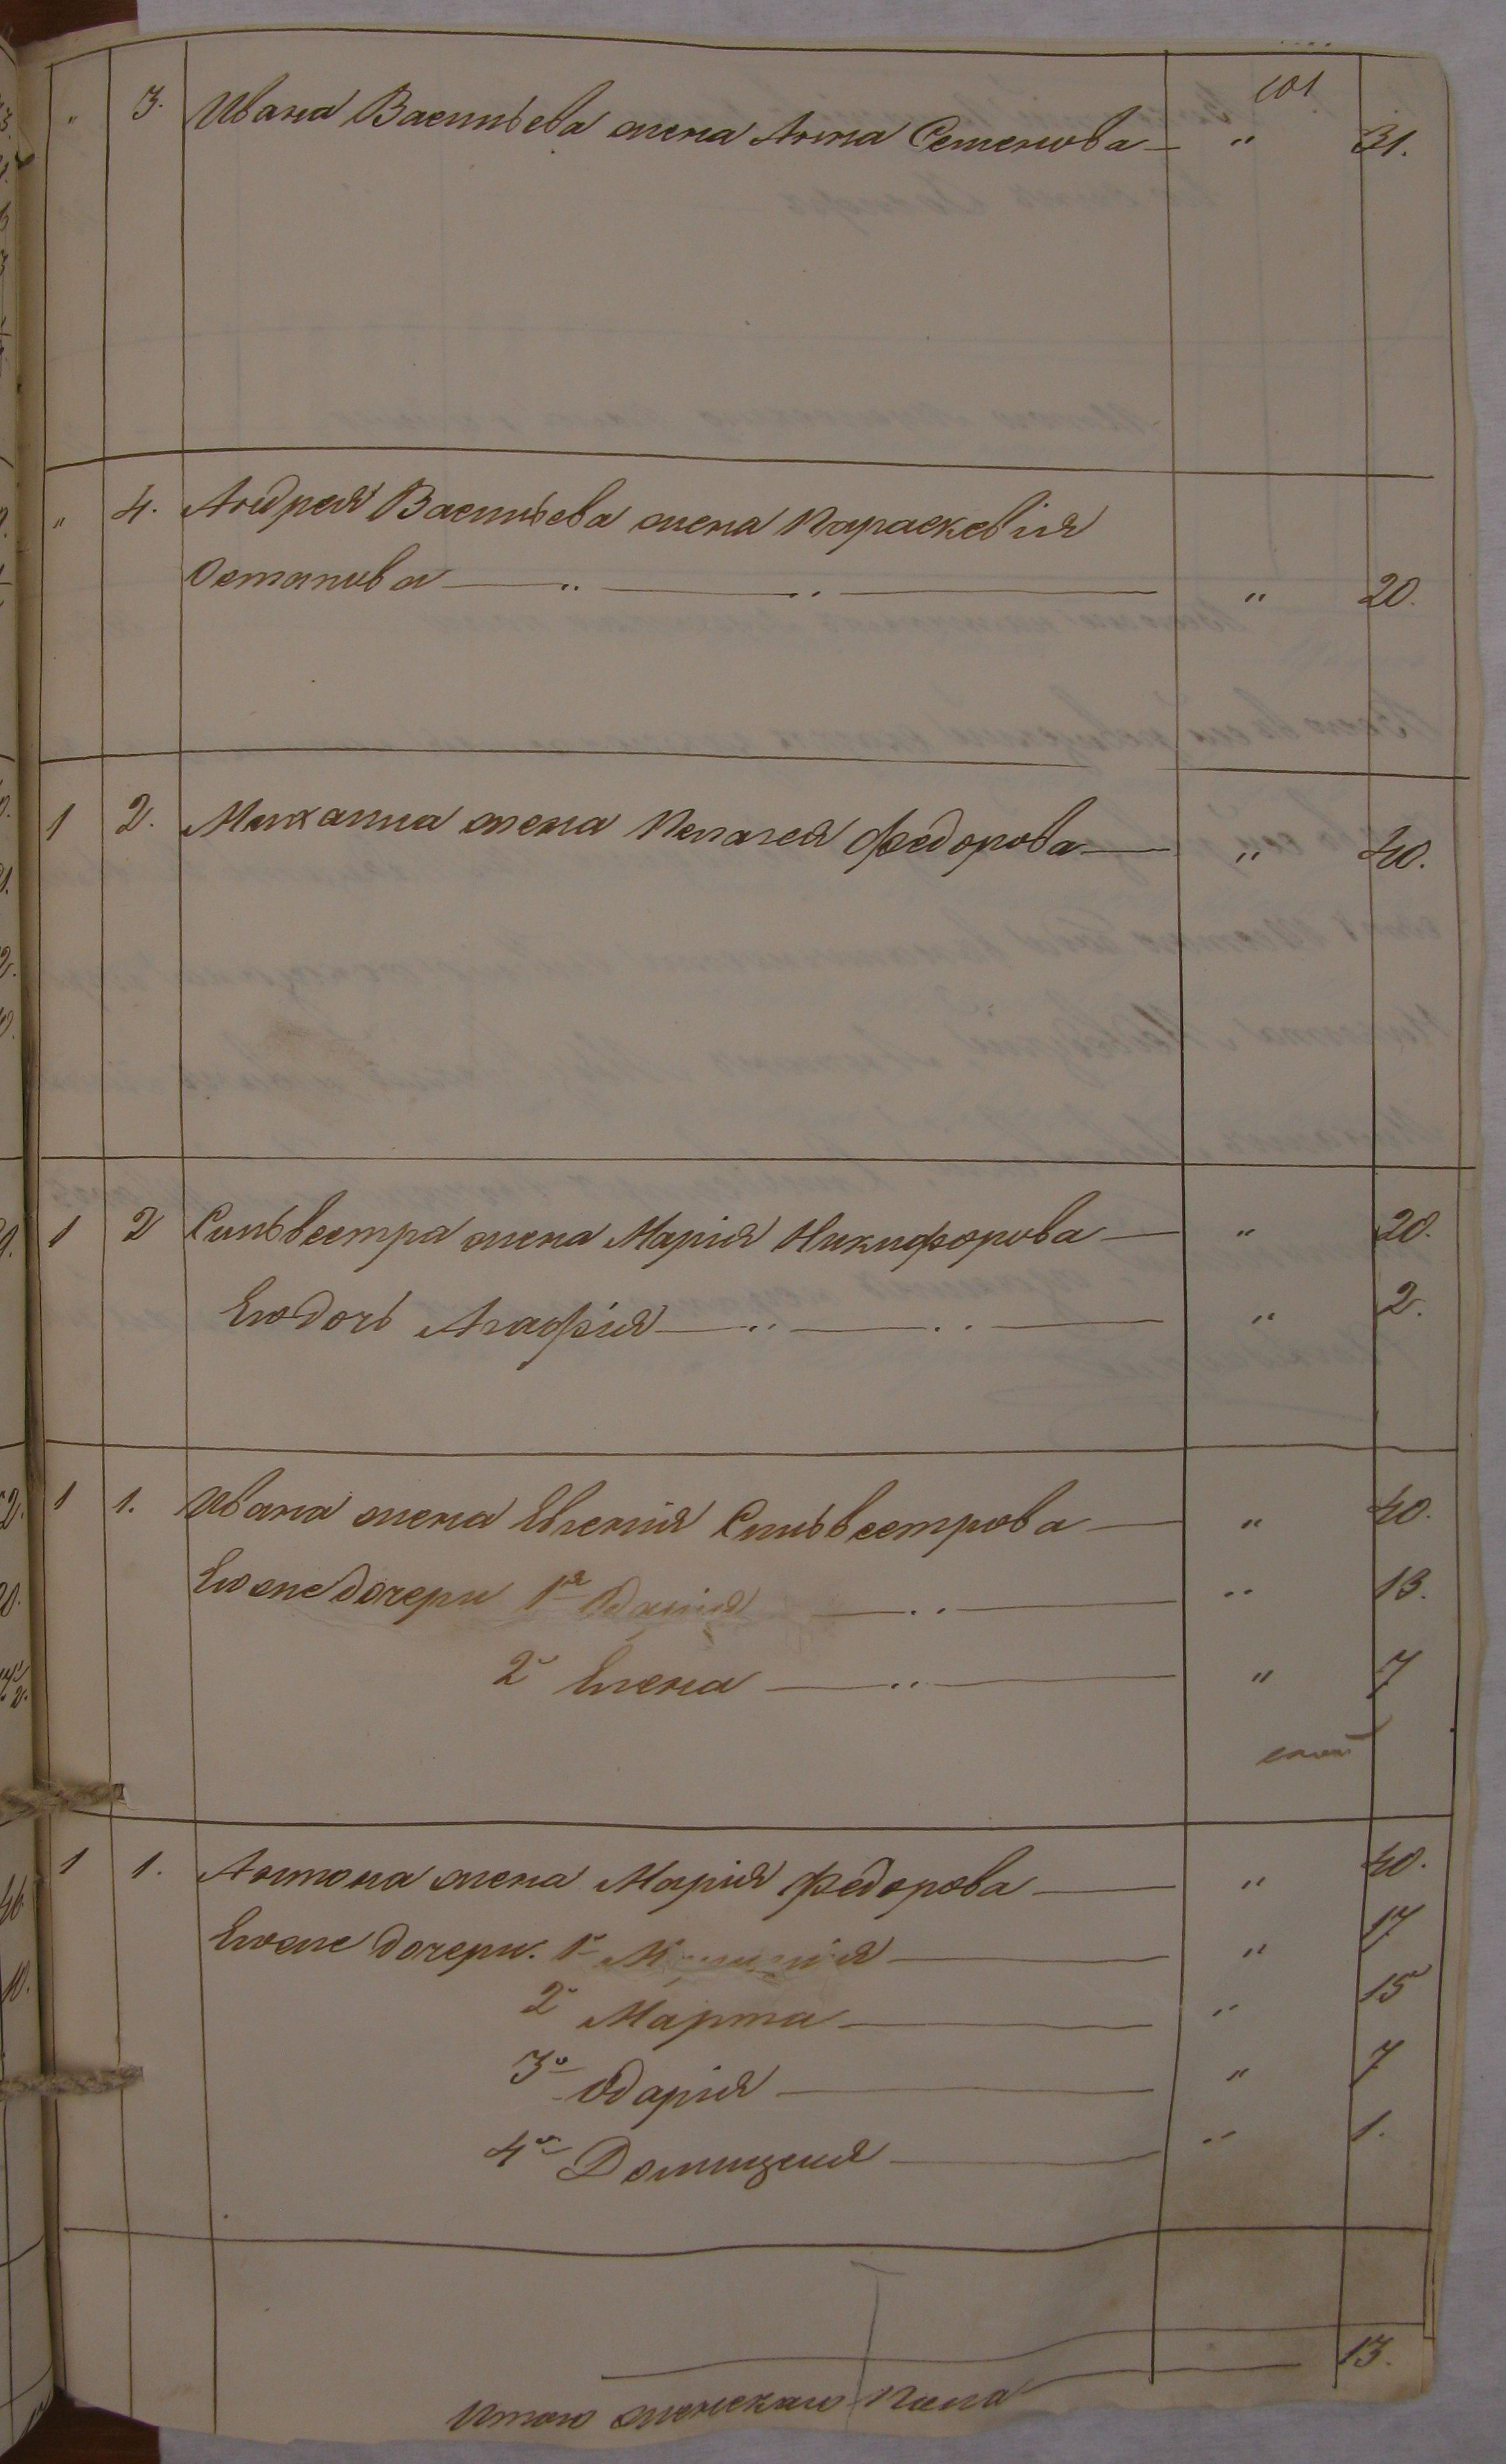 101
" 3. Ивана Васильева жена Анна Семенова — " 31.
" 4. Андрея Васильева жена Параскевія
Остапова — " 20.
1 2. Михаила жена Пелагея Федорова — " 40.
1 2 Сильвестра жена Марія Никифорова — " 20.
Его дочь Агафія — " 2.
1 1. Ивана жена Евгенія Сильвестрова — " 40.
Его же дочери 1я — " 13.
2я Елена — " 7
1 1. Антона жена Марія Федорова — " 40.
Его же дочери. 1я — " 17
2я Марта — " 15
3я Одарія — " 7
4я Домицеля — " 1.
Итого женскаго пола — 13.